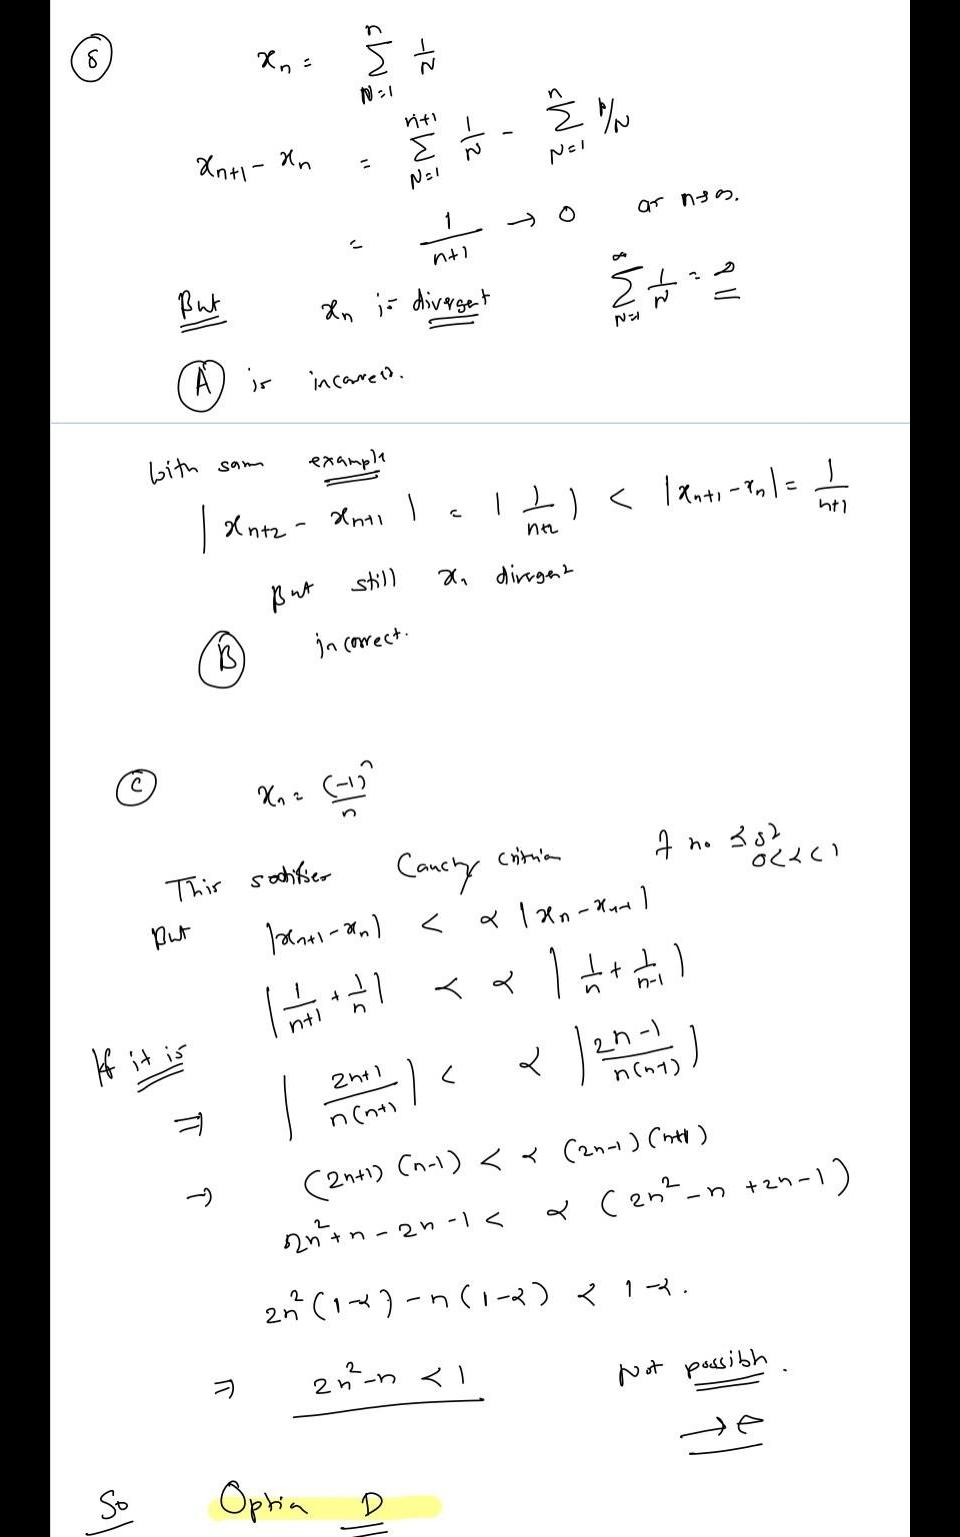 8
x_n = \sum_{N=1}^{n} \frac{1}{N}
x_{n+1} - x_n = \sum_{N=1}^{n+1} \frac{1}{N} - \sum_{N=1}^{n} 1/N
= \frac{1}{n+1} → 0 as n→∞.
But x_n is divergent \sum_{N=1}^{∞} \frac{1}{N} = ∞
A is incorrect.
With same example
|x_{n+2} - x_{n+1}| = |\frac{1}{n+2}| < |x_{n+1} - x_n| = \frac{1}{n+1}
But still x_n divergent
B incorrect.
C x_n = \frac{(-1)^n}{n}
This satisfies Cauchy criteria
0<α<1
But |x_{n+1} - x_n| < α |x_n - x_{n-1}|
|\frac{1}{n+1} + \frac{1}{n}| < α |\frac{1}{n} + \frac{1}{n-1}|
If it is
⇒ |\frac{2n+1}{n(n+1)}| < α |\frac{2n-1}{n(n-1)}|
→ (2n+1)(n-1) < α (2n-1)(n+1)
2n^2 + n - 2n - 1 < α (2n^2 - n + 2n - 1)
2n^2(1-α) - n(1-α) < 1-α.
⇒ 2n^2 - n < 1 Not possible.
→←
So Option D